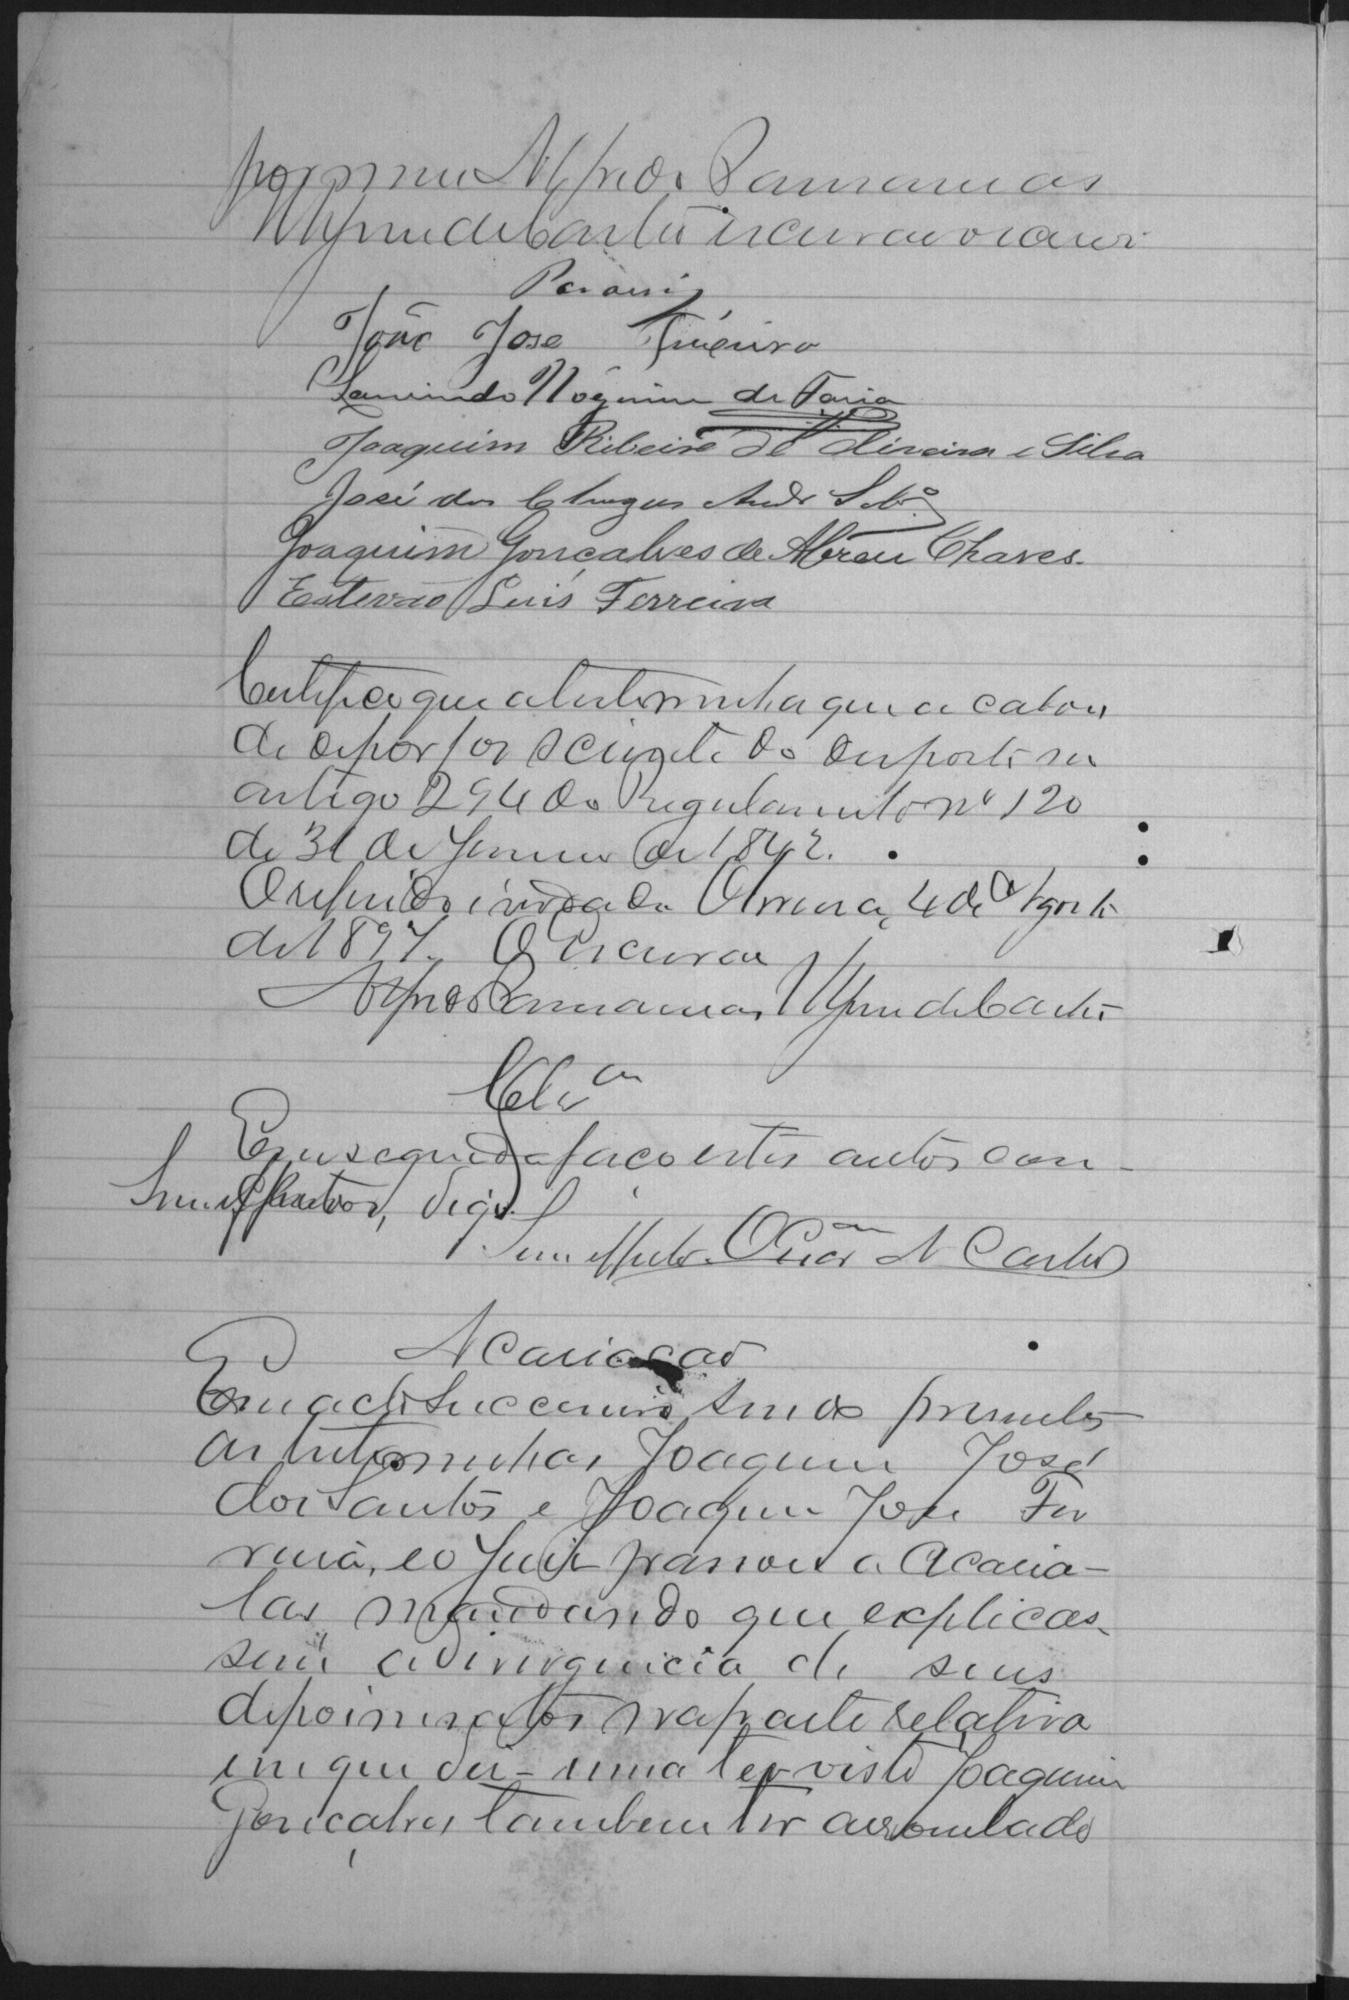 por mim Alfredo
de Castro escrivão
João José
de Faria
Joaquim Ribeiro de Oliveira e Silva
José das Chagas
Joaquim Gonçalves de Abreu Chaves.
Estevão Luis Ferreira
Certifico que a testemunha que acabou
de depor foi sciente do disposto no
artigo 294 do Regulamento nº 120
de 31 de Janeiro de 1842.
O referido é verdade 4 de Agosto
de 1897. O Escrivão
Alfredo de Castro
Clsam
Em seguida faço estes autos con-
digo
Sem effeito. O Escam A Castro
Acariação
Em acto successivo sendo presentes
as testemunhas Joaquim José
dos Santos e Joaquim José Fer
reira, e o Juiz passou a acaria-
las mandando que explicas-
sem a divergencia de seus
depoimentos na parte relativa
em que diz uma ter visto Joaquim
Gonçalves tambem ter arrombado